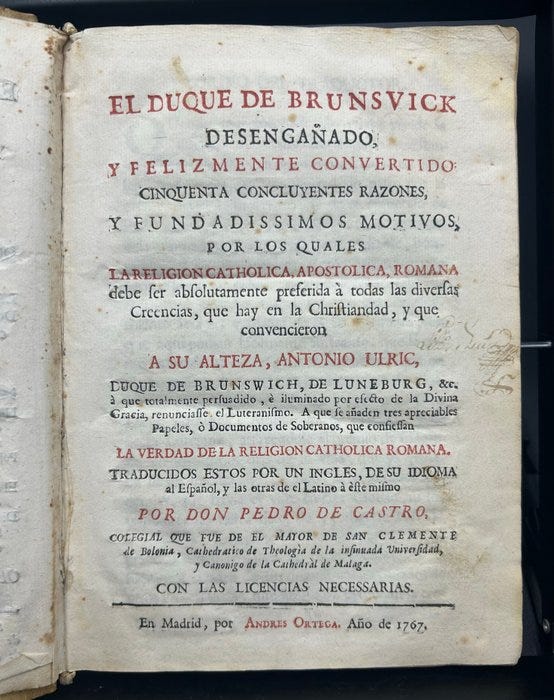 EL DUQUE DE BRUNSVICK
DESENGAÑADO,
Y FELIZMENTE CONVERTIDO:
CINQUENTA CONCLUYENTES RAZONES,
Y FUNDADISSIMOS MOTIVOS,
POR LOS QUALES
LA RELIGION CATHOLICA, APOSTOLICA, ROMANA
debe ſer abſolutamente preferida à todas las diverſas
Creencias, que hay en la Chriſtiandad, y que
convencieron
A SU ALTEZA, ANTONIO ULRIC,
DUQUE DE BRUNSWICH, DE LUNEBURG, &c.
à que totalmente perſuadido, è iluminado por efecto de la Divina
Gracia, renunciaſſe el Luteraniſmo. A que ſe añaden tres apreciables
Papeles, ò Documentos de Soberanos, que confieſſan
LA VERDAD DE LA RELIGION CATHOLICA ROMANA.
TRADUCIDOS ESTOS POR UN INGLES, DE SU IDIOMA
al Eſpañol, y las otras de el Latino à èſte miſmo
POR DON PEDRO DE CASTRO,
COLEGIAL QUE FUE DE EL MAYOR DE SAN CLEMENTE
de Bolonia, Cathedratico de Theologìa de la inſinuada Univerſidad,
y Canonigo de la Cathedràl de Malaga.
CON LAS LICENCIAS NECESSARIAS.
En Madrid, por ANDRES ORTEGA. Año de 1767.